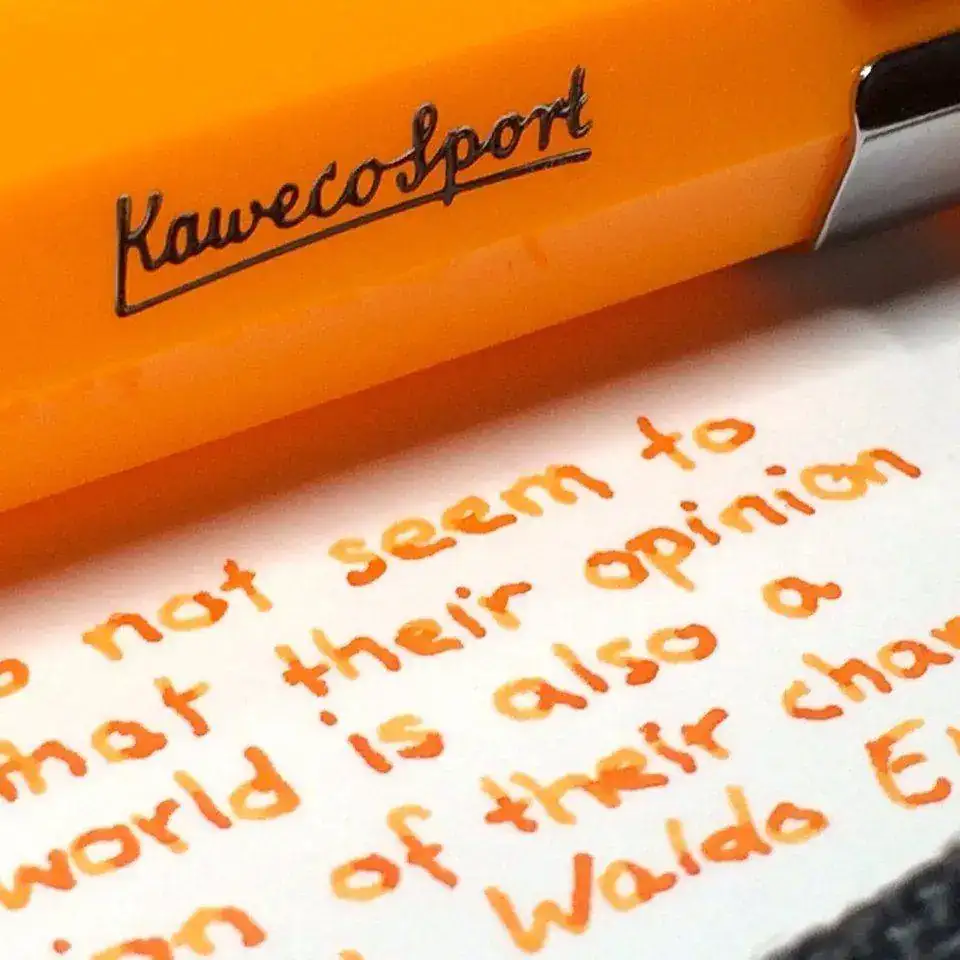 Kaweco Sport
not seem to
that their opinion
world is also a
of their
Waldo